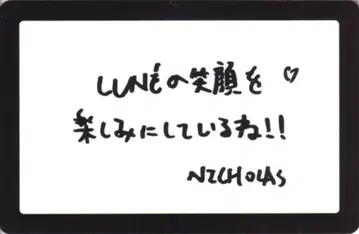 LUNÉの笑顔を♡
楽しみにしているね!!
NICHOLAS